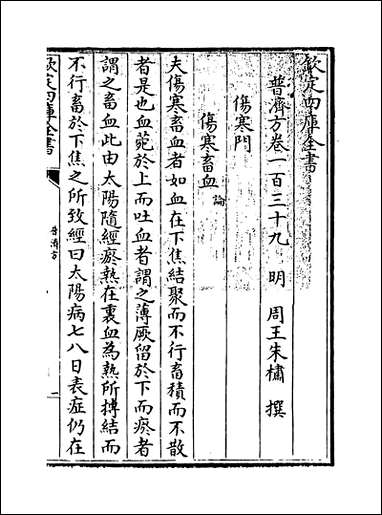 欽定四庫全書
普濟方卷一百三十九　明　周王朱橚　撰
傷寒門
傷寒畜血論
夫傷寒畜血者如血在下焦結聚而不行畜積而不散
者是也血菀於上而吐血者謂之薄厥留於下而瘀者
謂之畜血此由太陽隨經瘀熱在裏血為熱所搏結而
不行畜於下焦之所致經曰太陽病七八日表症仍在
欽定四庫全書
普濟方
一